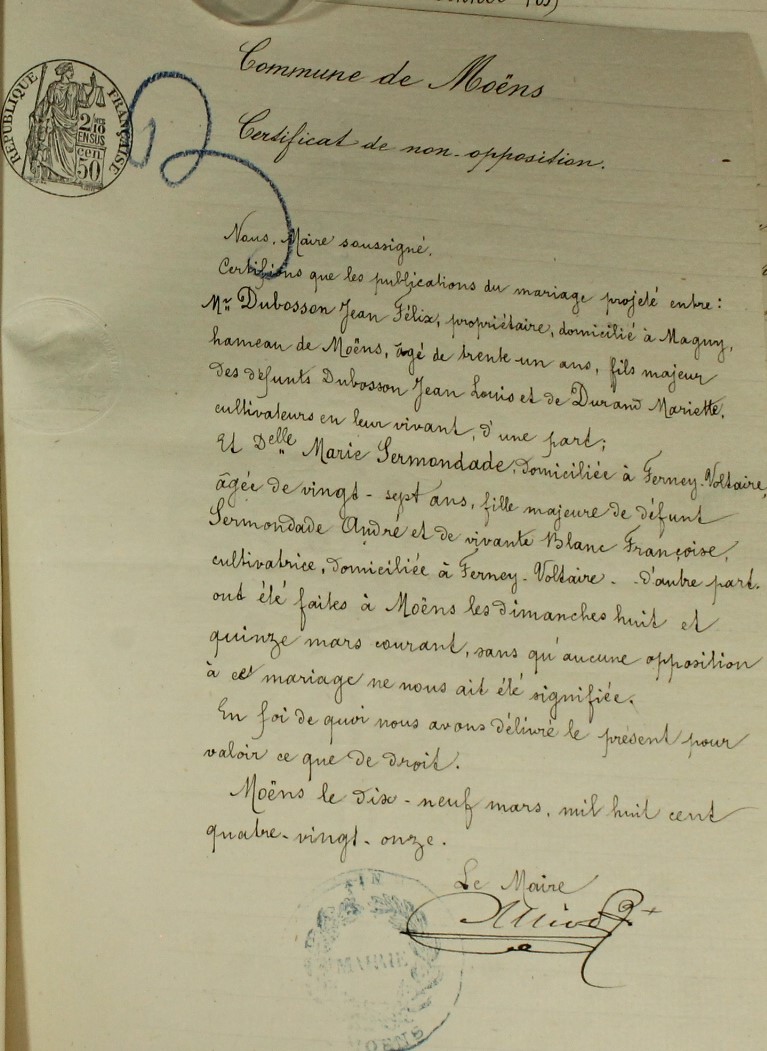 RÉPUBLIQUE FRANÇAISE
2/10
EN SUS
50
cen
Commune de Moëns
Certificat de non-opposition.
Nous, Maire soussigné,
Certifions que les publications du mariage projeté entre:
Mr Dubosson Jean Félix, propriétaire, domicilié à Magny,
hameau de Moëns, âgé de trente-un ans, fils majeur
des défunts Dubosson Jean Louis et de Durand Mariette,
cultivateurs en leur vivant, d'une part;
Et Delle Marie Sermondade, domiciliée à Ferney-Voltaire,
âgée de vingt-sept ans, fille majeure de défunt
Sermondade André et de vivante Blanc Françoise,
cultivatrice, domiciliée à Ferney-Voltaire - d'autre part.
ont été faites à Moëns les dimanches huit et
quinze mars courant, sans qu'aucune opposition
à cet mariage ne nous ait été signifiée.
En foi de quoi nous avons délivré le présent pour
valoir ce que de droit.
Moëns le dix-neuf mars, mil huit cent
quatre-vingt-onze.
Le Maire
MAIRIE